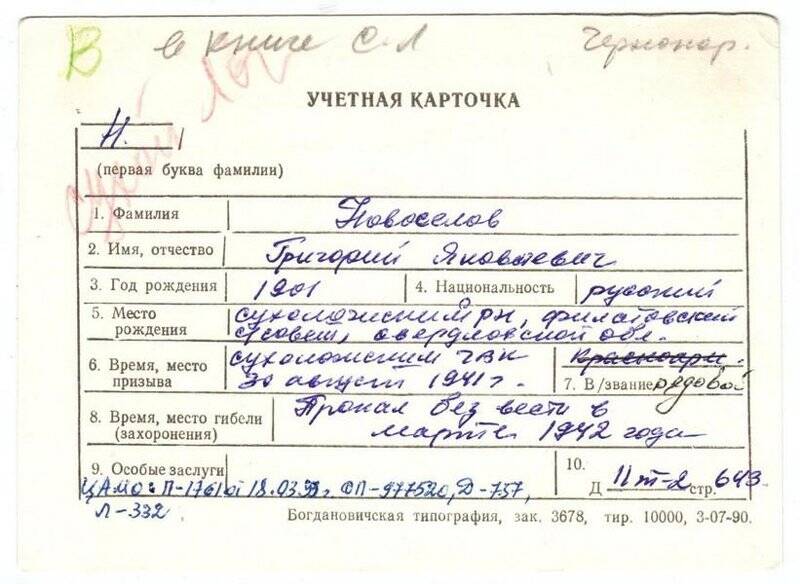 В в книге С-Л Чернокор.
Сухой Лог
УЧЕТНАЯ КАРТОЧКА
Н.
(первая буква фамилии)
1. Фамилия Новоселов
2. Имя, отчество Григорий Яковлевич
3. Год рождения 1901 4. Национальность русский
5. Место рождения сухоложский рн, филатовский
с/совет, свердловской обл.
6. Время, место призыва сухоложским ГВК Красноарм.
30 август 1941 г. 7. В/звание рядовой
8. Время, место гибели Пропал без вести в
(захоронения) марте 1942 года
9. Особые заслуги 10.
ЦАМО: П-1761 от 18.03. ОП-977520, Д-757, Д II т-2 стр. 643
Л-332
Богдановичская типография, зак. 3678, тир. 10000, 3-07-90.